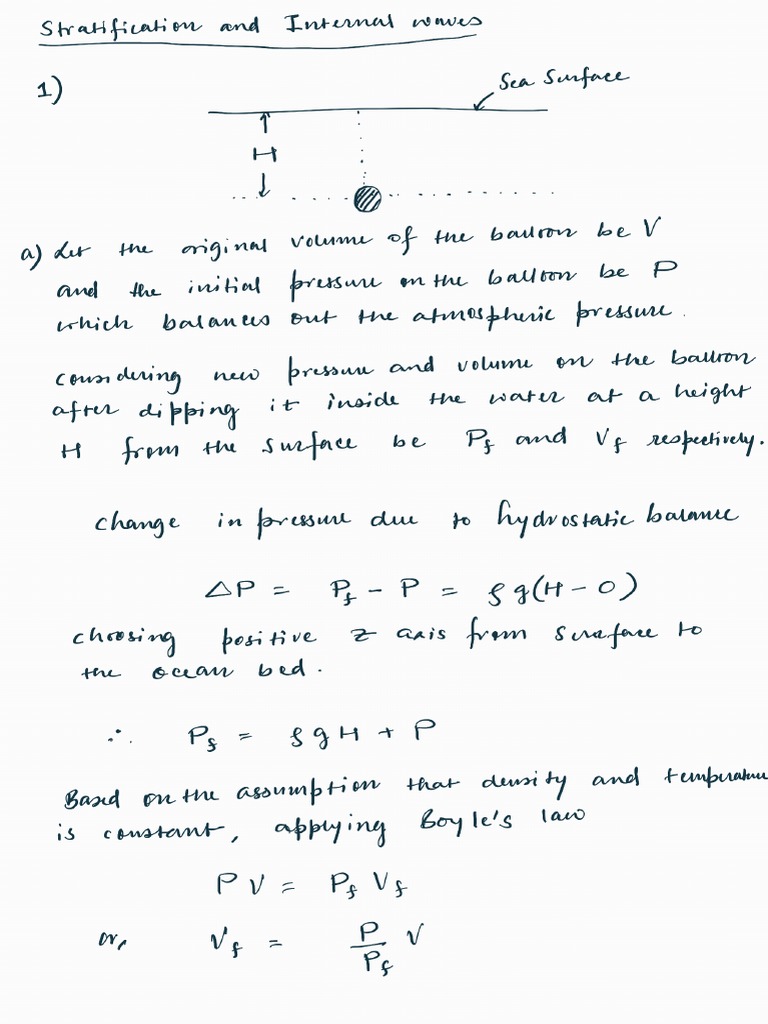 Stratification and Internal waves
1)
Sea Surface
H
a) Let the original volume of the balloon be V
and the initial pressure on the balloon be P
which balances out the atmospheric pressure.
Considering new pressure and volume on the balloon
after dipping it inside the water at a height
H from the surface be P_f and V_f respectively.
Change in pressure due to hydrostatic balance
ΔP = P_f - P = ρg(H - 0)
Choosing positive z axis from surface to
the ocean bed.
∴ P_f = ρgH + P
Based on the assumption that density and temperature
is constant, applying Boyle's law
PV = P_f V_f
or, V_f = P/P_f V